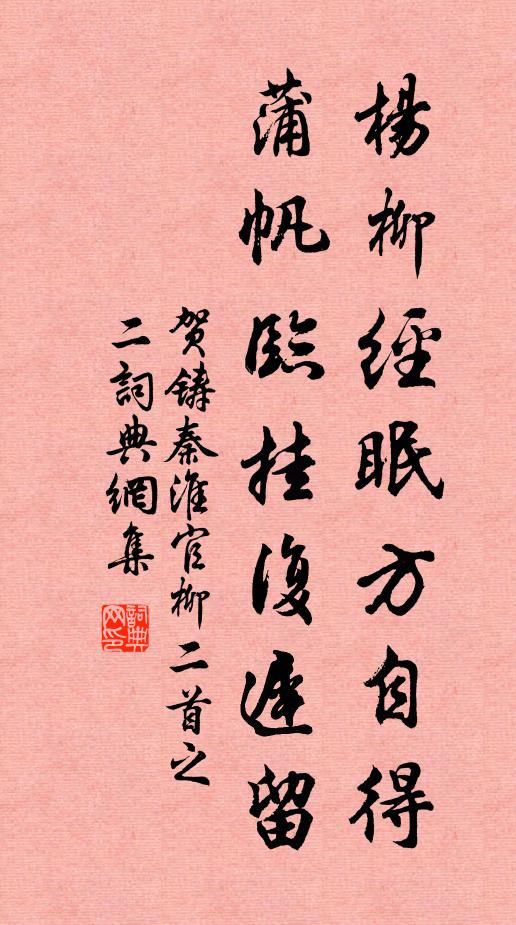 楊柳經眠方自得
蒲帆臨挂復遲留
贺鑄秦淮官柳二首之
二詞典網集
詞典網印